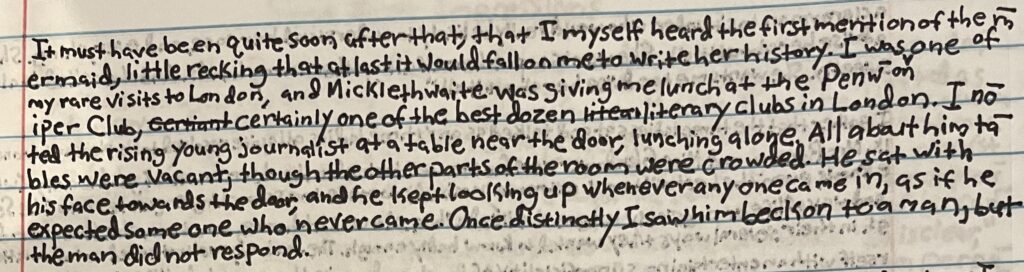 It must have been quite soon after that, that I myself heard the first mention of the m
ermaid, little recking that at last it would fall on me to write her history. I was one of
my rare visits to London, and Micklethwaite was giving me lunch at the Penw on
iper Club, certiant certainly one of the best dozen literary clubs in London. I no
ted the rising young journalist at a table near the door, lunching alone. All about him ta
bles were vacant, though the other parts of the room were crowded. He sat with
his face towards the door, and he kept looking up whenever any one came in, as if he
expected some one who never came. Once distinctly I saw him beckon to a man, but
the man did not respond.